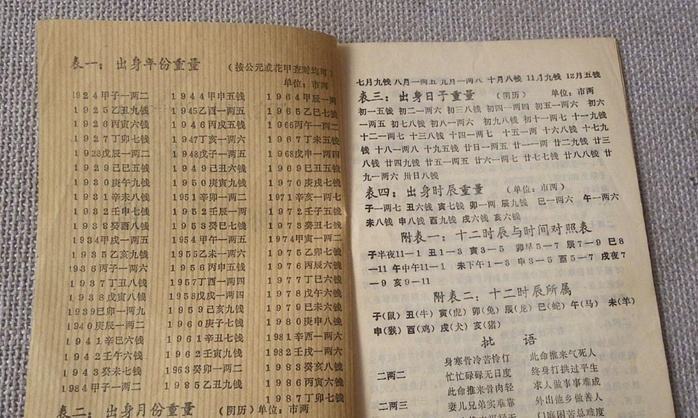 表一：出身年份重量 （按公元或花甲查对均可）
单位：市两
1924甲子一两二 1944甲申五钱 1964甲辰一两
1925乙丑九钱 1945乙酉一两五 1965乙巳七钱
1926丙寅六钱 1946丙戌五钱 1966丙午一两二
1927丁卯七钱 1947丁亥一两六 1967丁未五钱
1928戊辰一两二 1948戊子一两五 1968戊申一两四
1929己巳五钱 1949己丑六钱 1969己酉五钱
1930庚午九钱 1950庚寅九钱 1970庚戌七钱
1931辛未八钱 1951辛卯一两二 1971辛亥一两七
1932壬申七钱 1952壬辰一两 1972壬子五钱
1933癸酉八钱 1953癸巳七钱 1973癸丑七钱
1934甲戌一两五 1954甲午一两五 1974甲寅一两二
1935乙亥九钱 1955乙未一两六 1975乙卯七钱
1936丙子一两六 1956丙申五钱 1976丙辰六钱
1937丁丑八钱 1957丁酉一两四 1977丁巳六钱
1938戊寅八钱 1958戊戌一两四 1978戊午六钱
1939己卯一两九 1959己亥九钱 1979己未六钱
1940庚辰一两二 1960庚子七钱 1980庚申八钱
1941辛巳六钱 1961辛丑七钱 1981辛酉一两六
1942壬午六钱 1962壬寅九钱 1982壬戌一两
1943癸未七钱 1963癸卯一两二 1983癸亥七钱
1984甲子一两二 1985乙丑九钱 1986丙寅六钱
1987丁卯七钱
表二：出身月份重量 （阴历）单位：市两
七月九钱 八月一两五 九月一两八 十月八钱 11月九钱 12月五钱
表三：出身日子重量 （阴历） 单位：市两
初一五钱 初二一两六 初三八钱 初四一两四 初五一两六 初六
一两五 初七八钱 初八一两六 初九八钱 初十一两六 十一九钱
十二一两七 十三八钱 十四一两七 十五一两 十六八钱 十七九
钱 十八一两八 十九五钱 廿日一两五 廿一一两 廿二九钱 廿三
八钱 廿四九钱 廿五一两五 廿六一两八 廿七七钱 廿八八钱 廿
九一两六 卅日八钱
表四：出身时辰重量 （单位：市两）
子一两七 丑六钱 寅七钱 卯一两 辰九钱 巳一两六 午一两六
未八钱 申八钱 酉九钱 戌六钱 亥六钱
附表一：十二时辰与时间对照表
子半夜11－1 丑1－3 寅3－5 卯早5－7 辰7－9 巳9
－11 午中午11－1 未下午1－3 申3－5 酉5－7 戌夜7
－9 亥9－11
附表二：十二时辰所属
子（鼠）丑（牛）寅（虎）卯（兔）辰（龙）巳（蛇）午（马） 未（羊）
申（猴）酉（鸡）戌（犬）亥（猪）
批 语
身寒骨冷苦伶仃 此命推来气死人
二两二 忙忙碌碌无日度 终身打拱过平生
此命推来骨肉轻 求人做事事难成
二两三 妻儿兄弟实难靠 外出他乡做善人